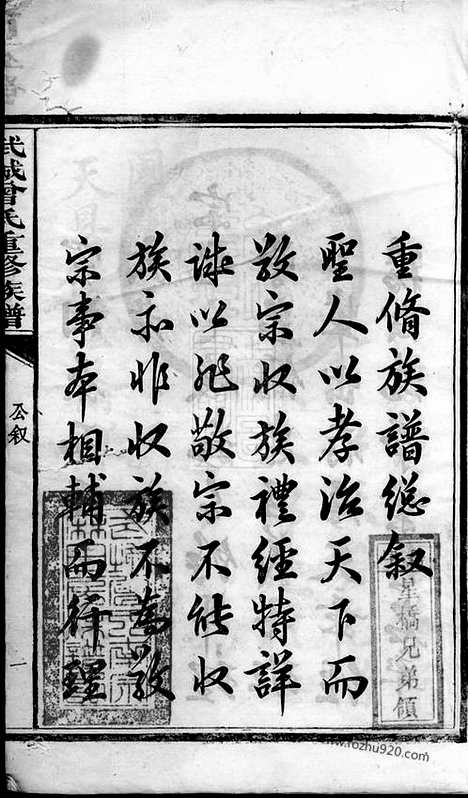 重脩族譜總叙
聖人以孝治天下而
敬宗收族禮經特詳
誠以非敬宗不能收
族亦非收族不為敬
宗事本相輔而行鏗
武城曾氏重修族譜
公叙
一
星橋兄弟領
www.fozhu920.com